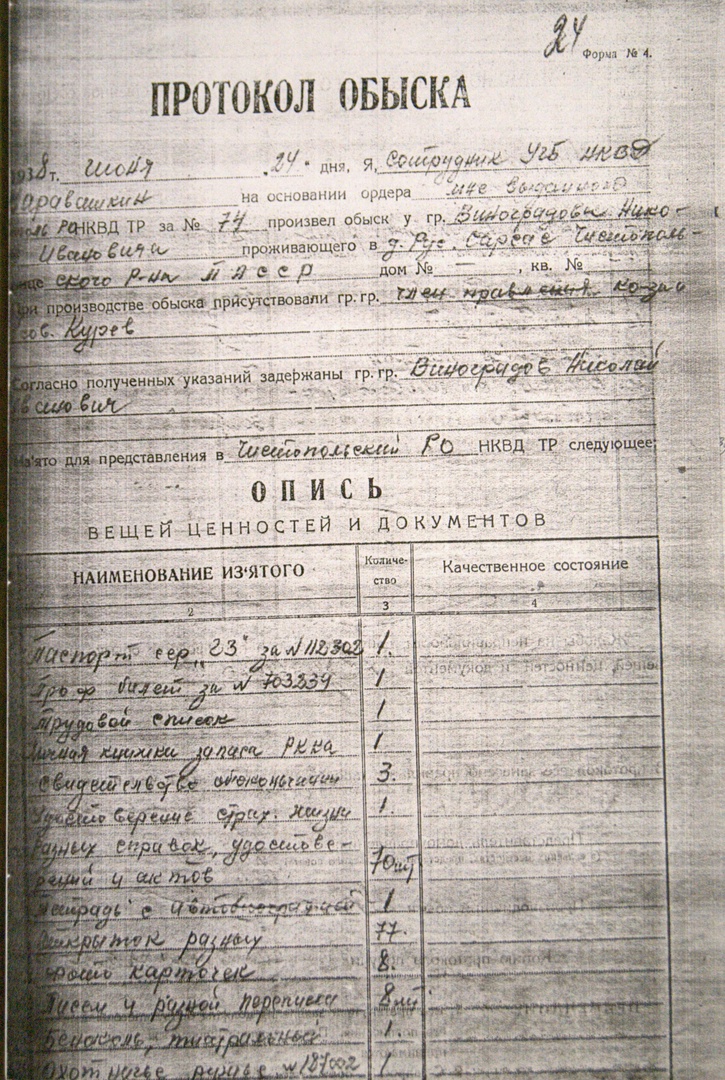 24
Форма № 4.
ПРОТОКОЛ ОБЫСКА
1938 г. июня „24“ дня, Я, Сотрудник УГБ НКВД
Каравашкин на основании ордера мне выданного
РО НКВД ТР за № 74 произвел обыск у гр. Виноградова Нико-
Ивановича проживающего в д. Рус. Сарсас Чистополь-
ского Р-на ТАССР дом № — , кв. №
При производстве обыска присутствовали гр. гр. член правления
тов. Курев
Согласно полученных указаний задержаны гр. гр. Виноградов Николай
Иванович
Из'ято для представления в Чистопольский РО НКВД ТР следующее:
ОПИСЬ
ВЕЩЕЙ ЦЕННОСТЕЙ И ДОКУМЕНТОВ
НАИМЕНОВАНИЕ ИЗ'ЯТОГО Количе-ство Качественное состояние
2 3 4
Паспорт сер. „23“ за № 112302 1.
Проф билет за № 703234 1
Трудовой список 1
Личная книжка запаса РККА 1
Свидетельство об окончании 3.
Удостоверение страх. жизни 1.
Разных справок, удостове-
рений и актов 70 шт
Тетрадь с автобиографией 1
Открыток разных 77.
Фото карточек 8.
Писем и разной переписки 8 шт
Бинокль, театральный 1.
Охотничье ружье № 187002 1